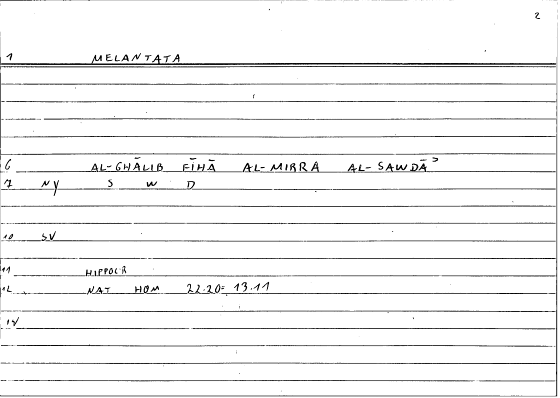 2
1 MELANTATA
6 AL-GHĀLIB FĪHĀ AL-MIRRA AL-SAWDĀʾ
7 NY S W D
10 SV
11 HIPPOCR
12 NAT HOM 22.20= 13.11
14